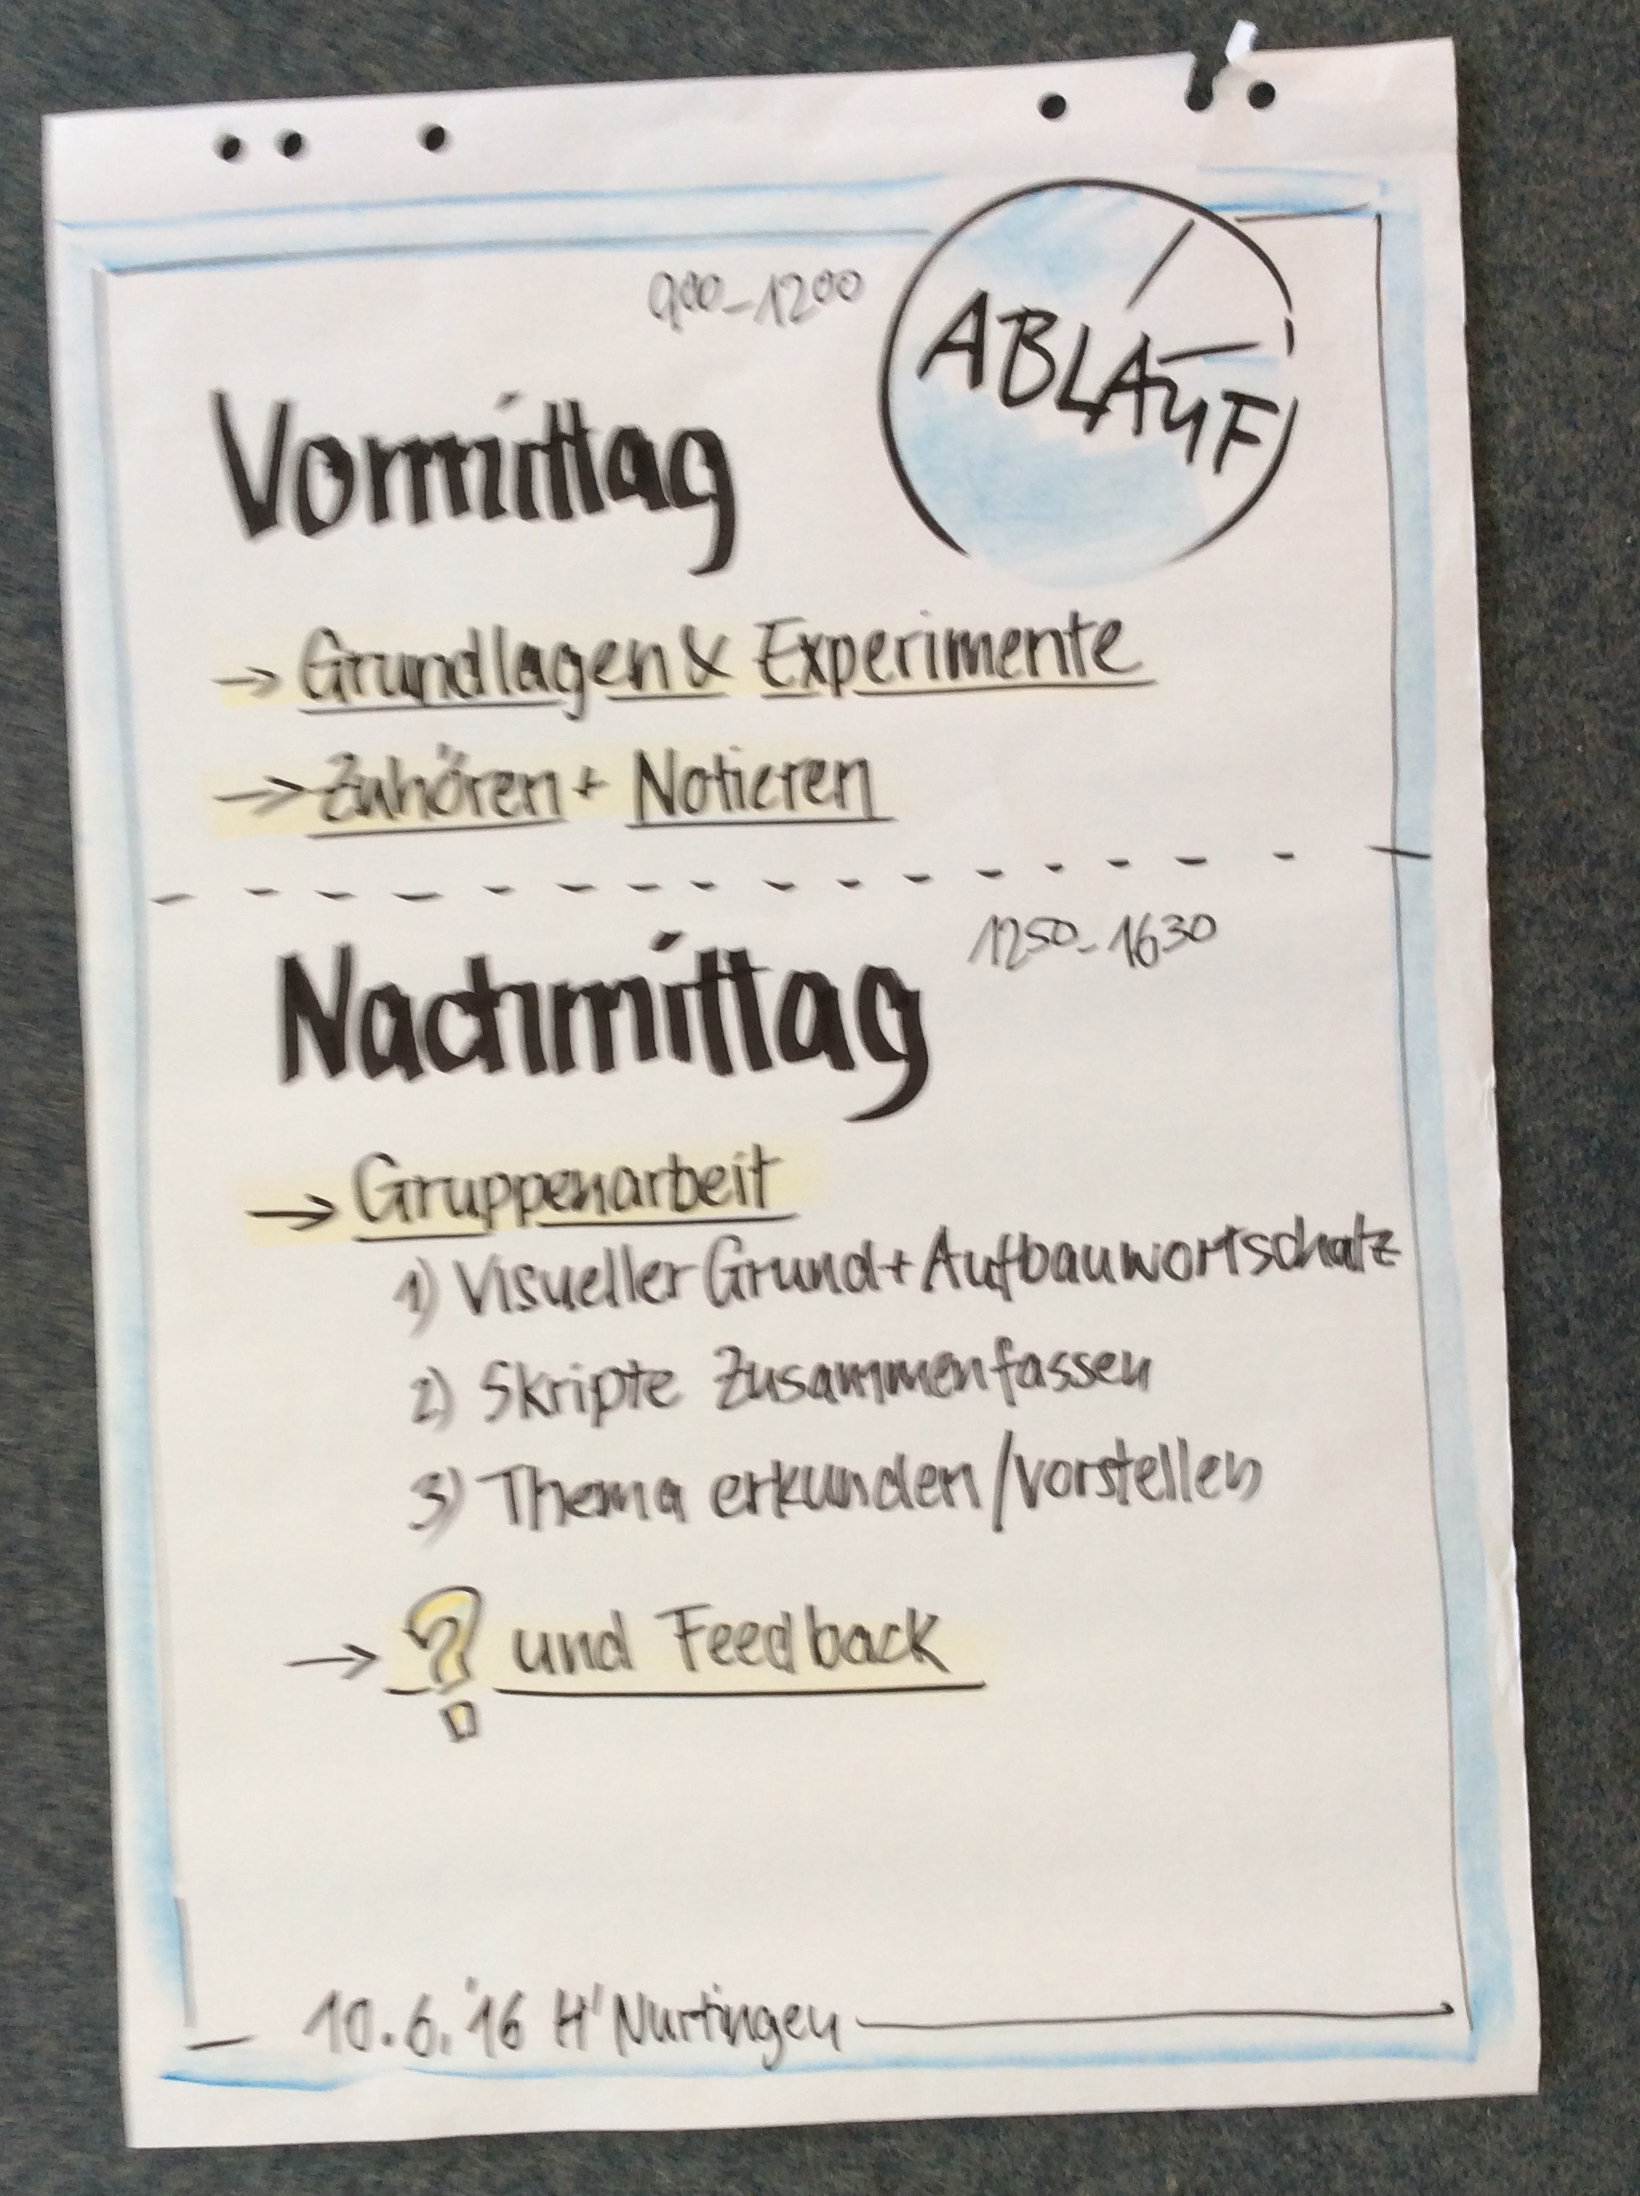 900-1200
ABLAUF
Vormittag
→ Grundlagen & Experimente
→ Zuhören + Notieren
1250-1630
Nachmittag
→ Gruppenarbeit
1) Visueller Grund+Aufbauwortschatz
2) Skripte Zusammenfassen
3) Thema erkunden/vorstellen
→ ? und Feedback
10.6.'16 H'Nurtingen